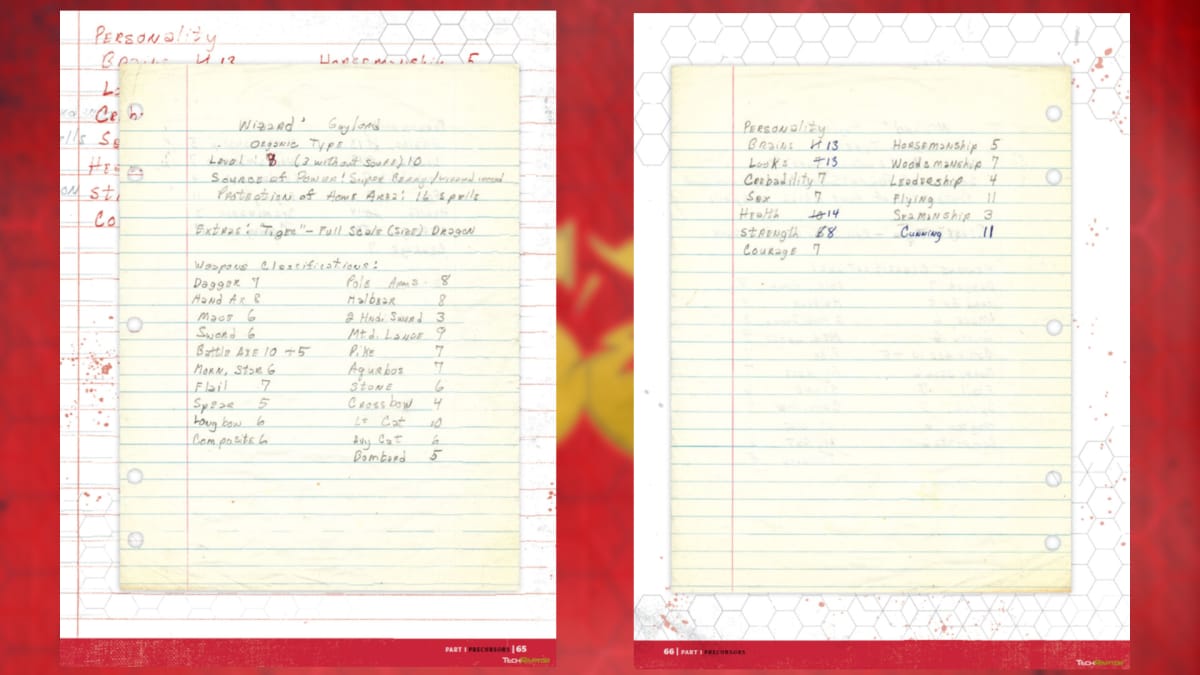 PERSONALITY
Horsemanship 5
Wizard: Gaylord
Organic Type
Level 8 (3 without source) 10
Source of Power: Super Berry/
Protection of Home Area: 16 spells
Extras: "Tigre" - Full Scale (size) Dragon
Weapons Classifications:
Dagger 7 Pole Arms 8
Hand Ax 8 Halbear 8
Mace 6 2 Hnd. Sword 3
Sword 6 Mtd. Lance 9
Battle Axe 10 +5 Pike 7
Morn. Star 6 Aqurbos 7
Flail 7 STONE 6
Spear 5 Crossbow 4
Long bow 6 Lt Cat 10
Composite 6 Hvy Cat 6
Bombard 5
PART 1 PRECURSORS | 65
TECHRAPTOR
PERSONALITY
Brains 13 Horsemanship 5
Looks 13 Woodsmanship 7
Creadability 7 Leadership 4
Sex 7 Flying 11
Health 14 Seamanship 3
Strength 8 Cunning 11
Courage 7
66 | PART 1 PRECURSORS
TECHRAPTOR